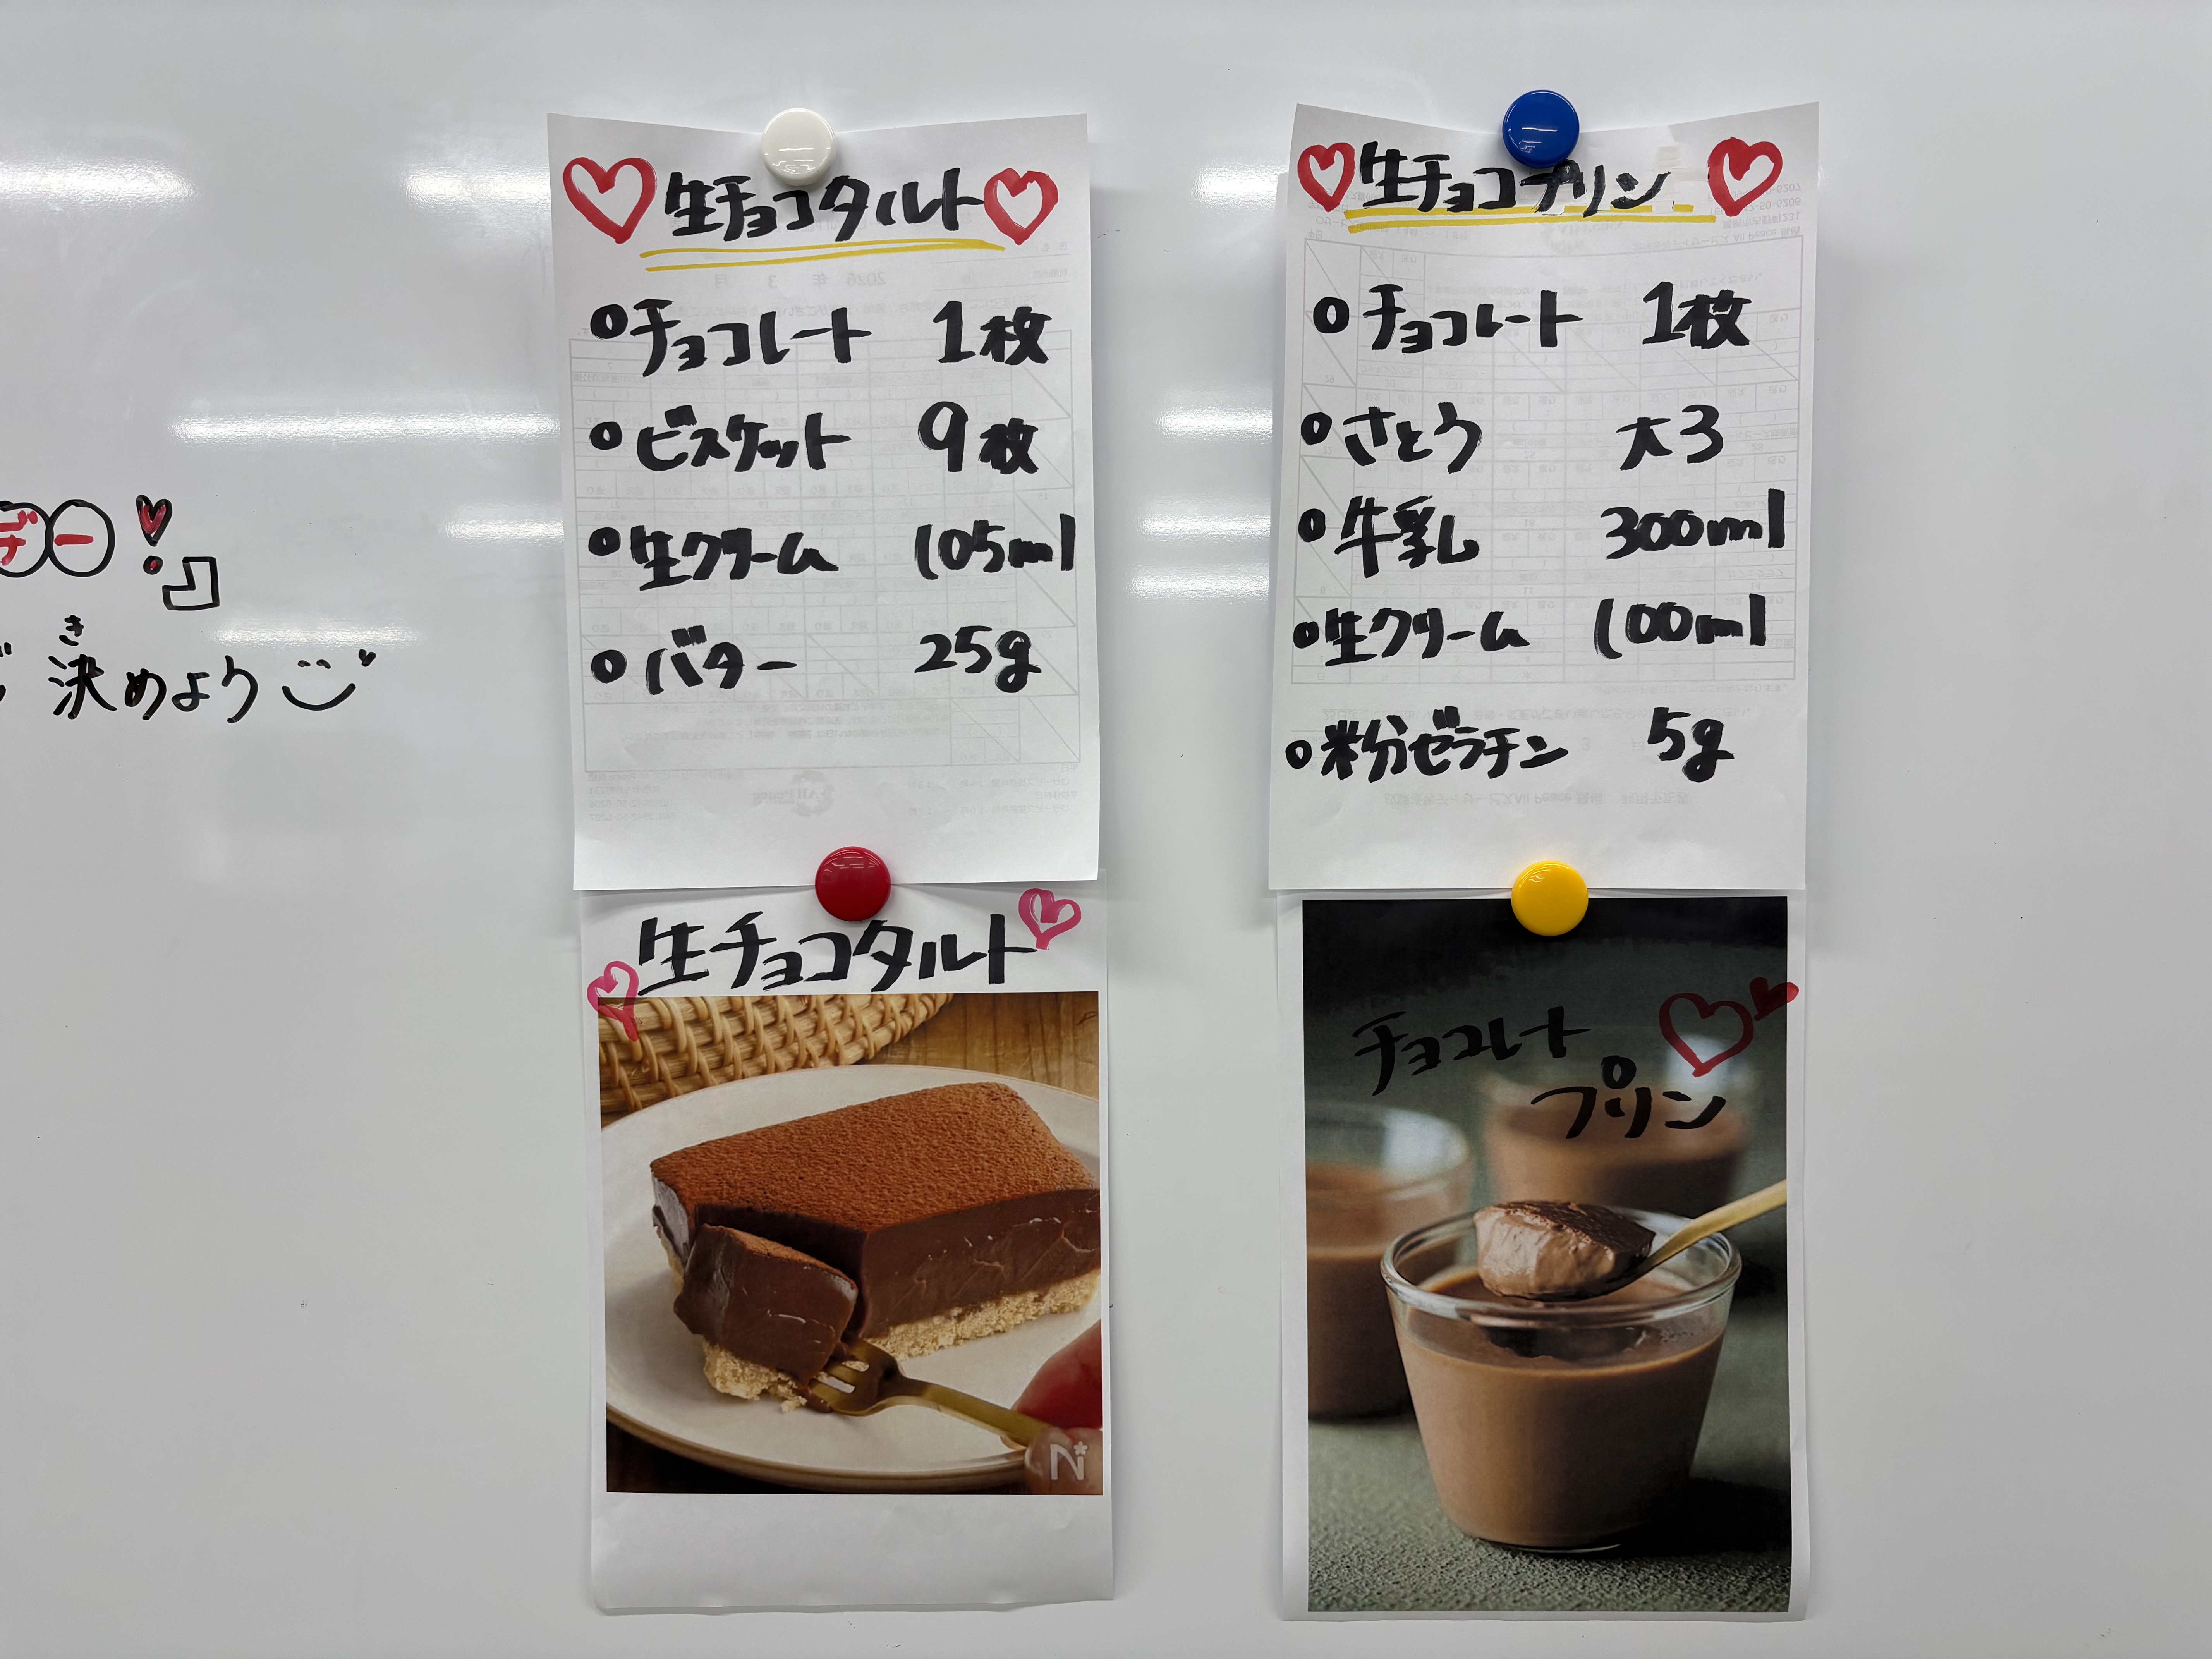 デー!』
決めよう
き
生チョコタルト
チョコレート 1枚
ビスケット 9枚
生クリーム 105ml
バター 25g
生チョコタルト
N
生チョコプリン
チョコレート 1枚
さとう 大3
牛乳 300ml
生クリーム 100ml
粉ゼラチン 5g
チョコレート
プリン